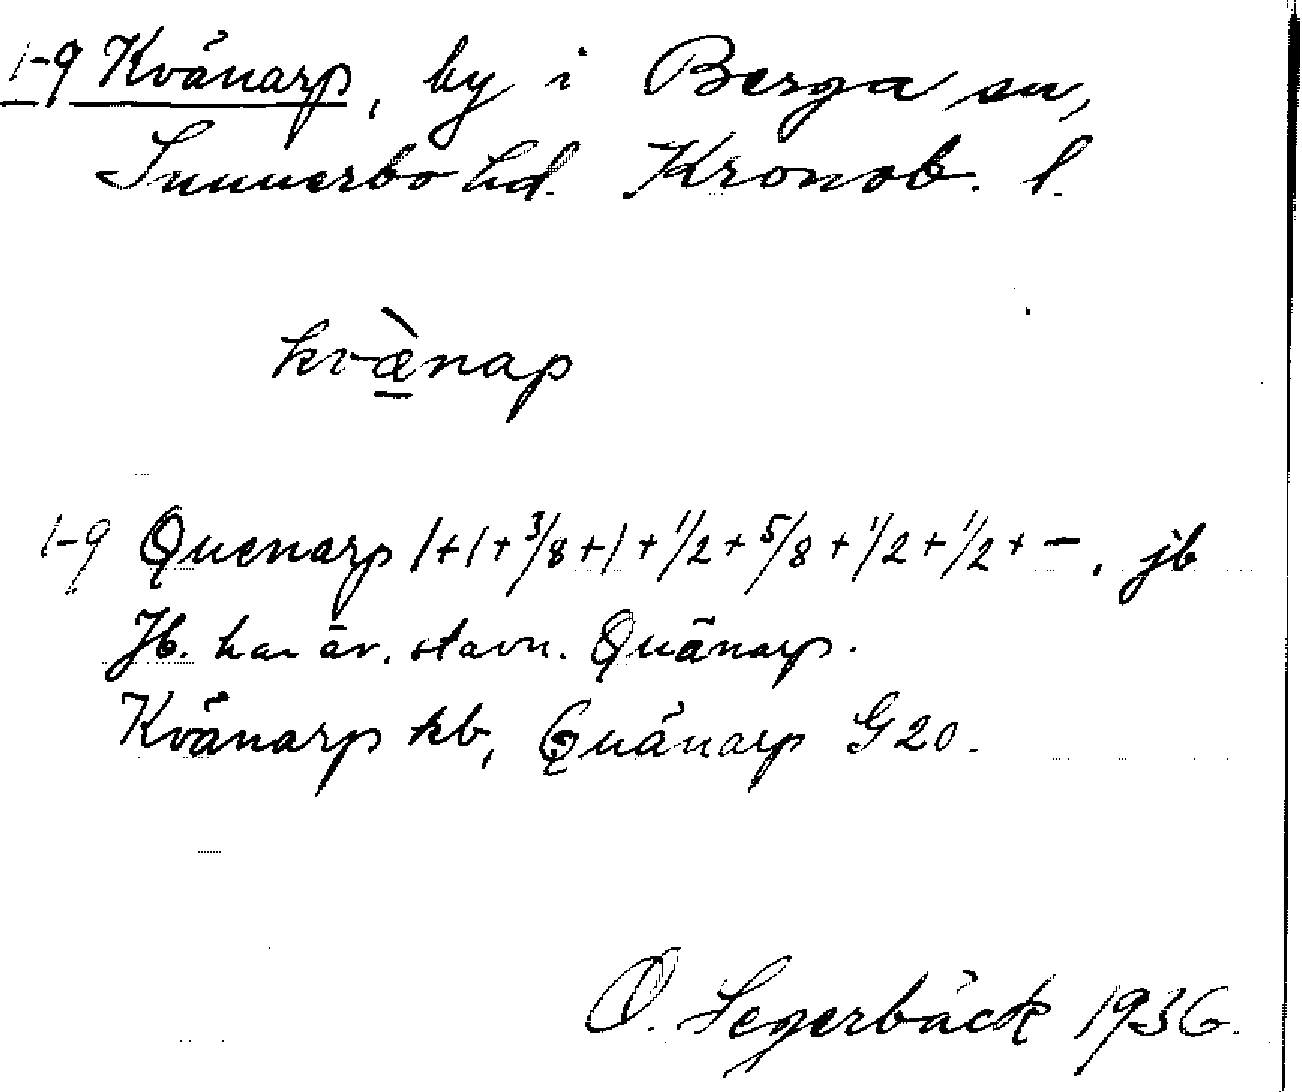 1-9 Kvänarp, by i Berga sn,
Sunnerbo hd. Kronob. l.
kvæ̲̀nap
1-9 Quenarp 1+1+3/8+1+1/2+5/8+1/2+1/2+-, jb
Jb. har äv. stavn. Quänarp.
Kvänarp kb, Quänarp G20.
O. Segerbäck 1936.